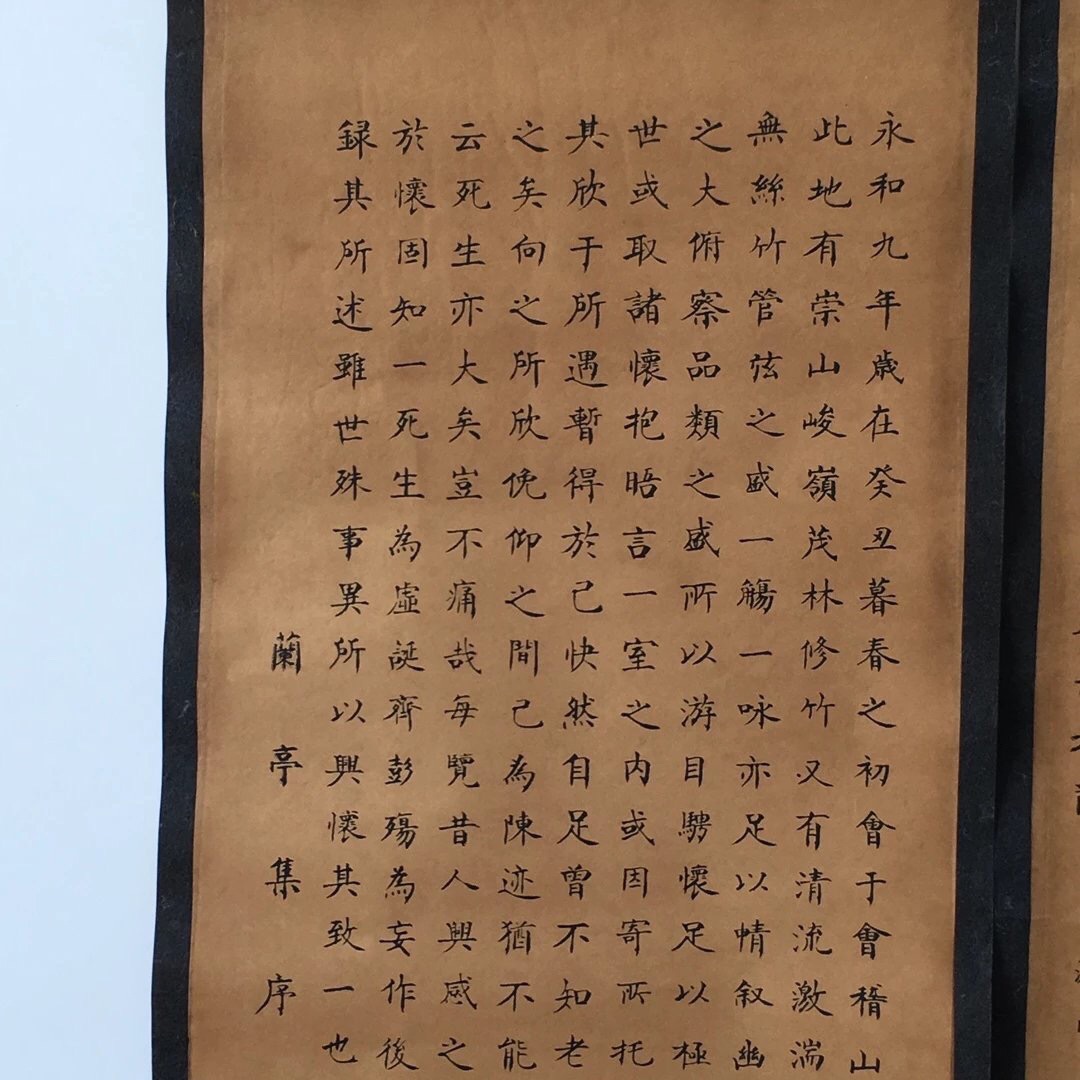 永和九年歲在癸丑暮春之初會于會稽山
此地有崇山峻嶺茂林修竹又有清流激湍
無絲竹管弦之盛一觴一咏亦足以情叙幽
之大俯察品類之盛所以游目騁懷足以極
世或取諸懷抱晤言一室之内或因寄所托
其欣于所遇暫得於己快然自足曾不知老
之矣向之所欣俛仰之間己為陳迹猶不能
云死生亦大矣豈不痛哉每覽昔人興感之
於懷固知一死生為虛誕齊彭殤為妄作後
録其所述雖世殊事異所以興懷其致一也
蘭亭集序